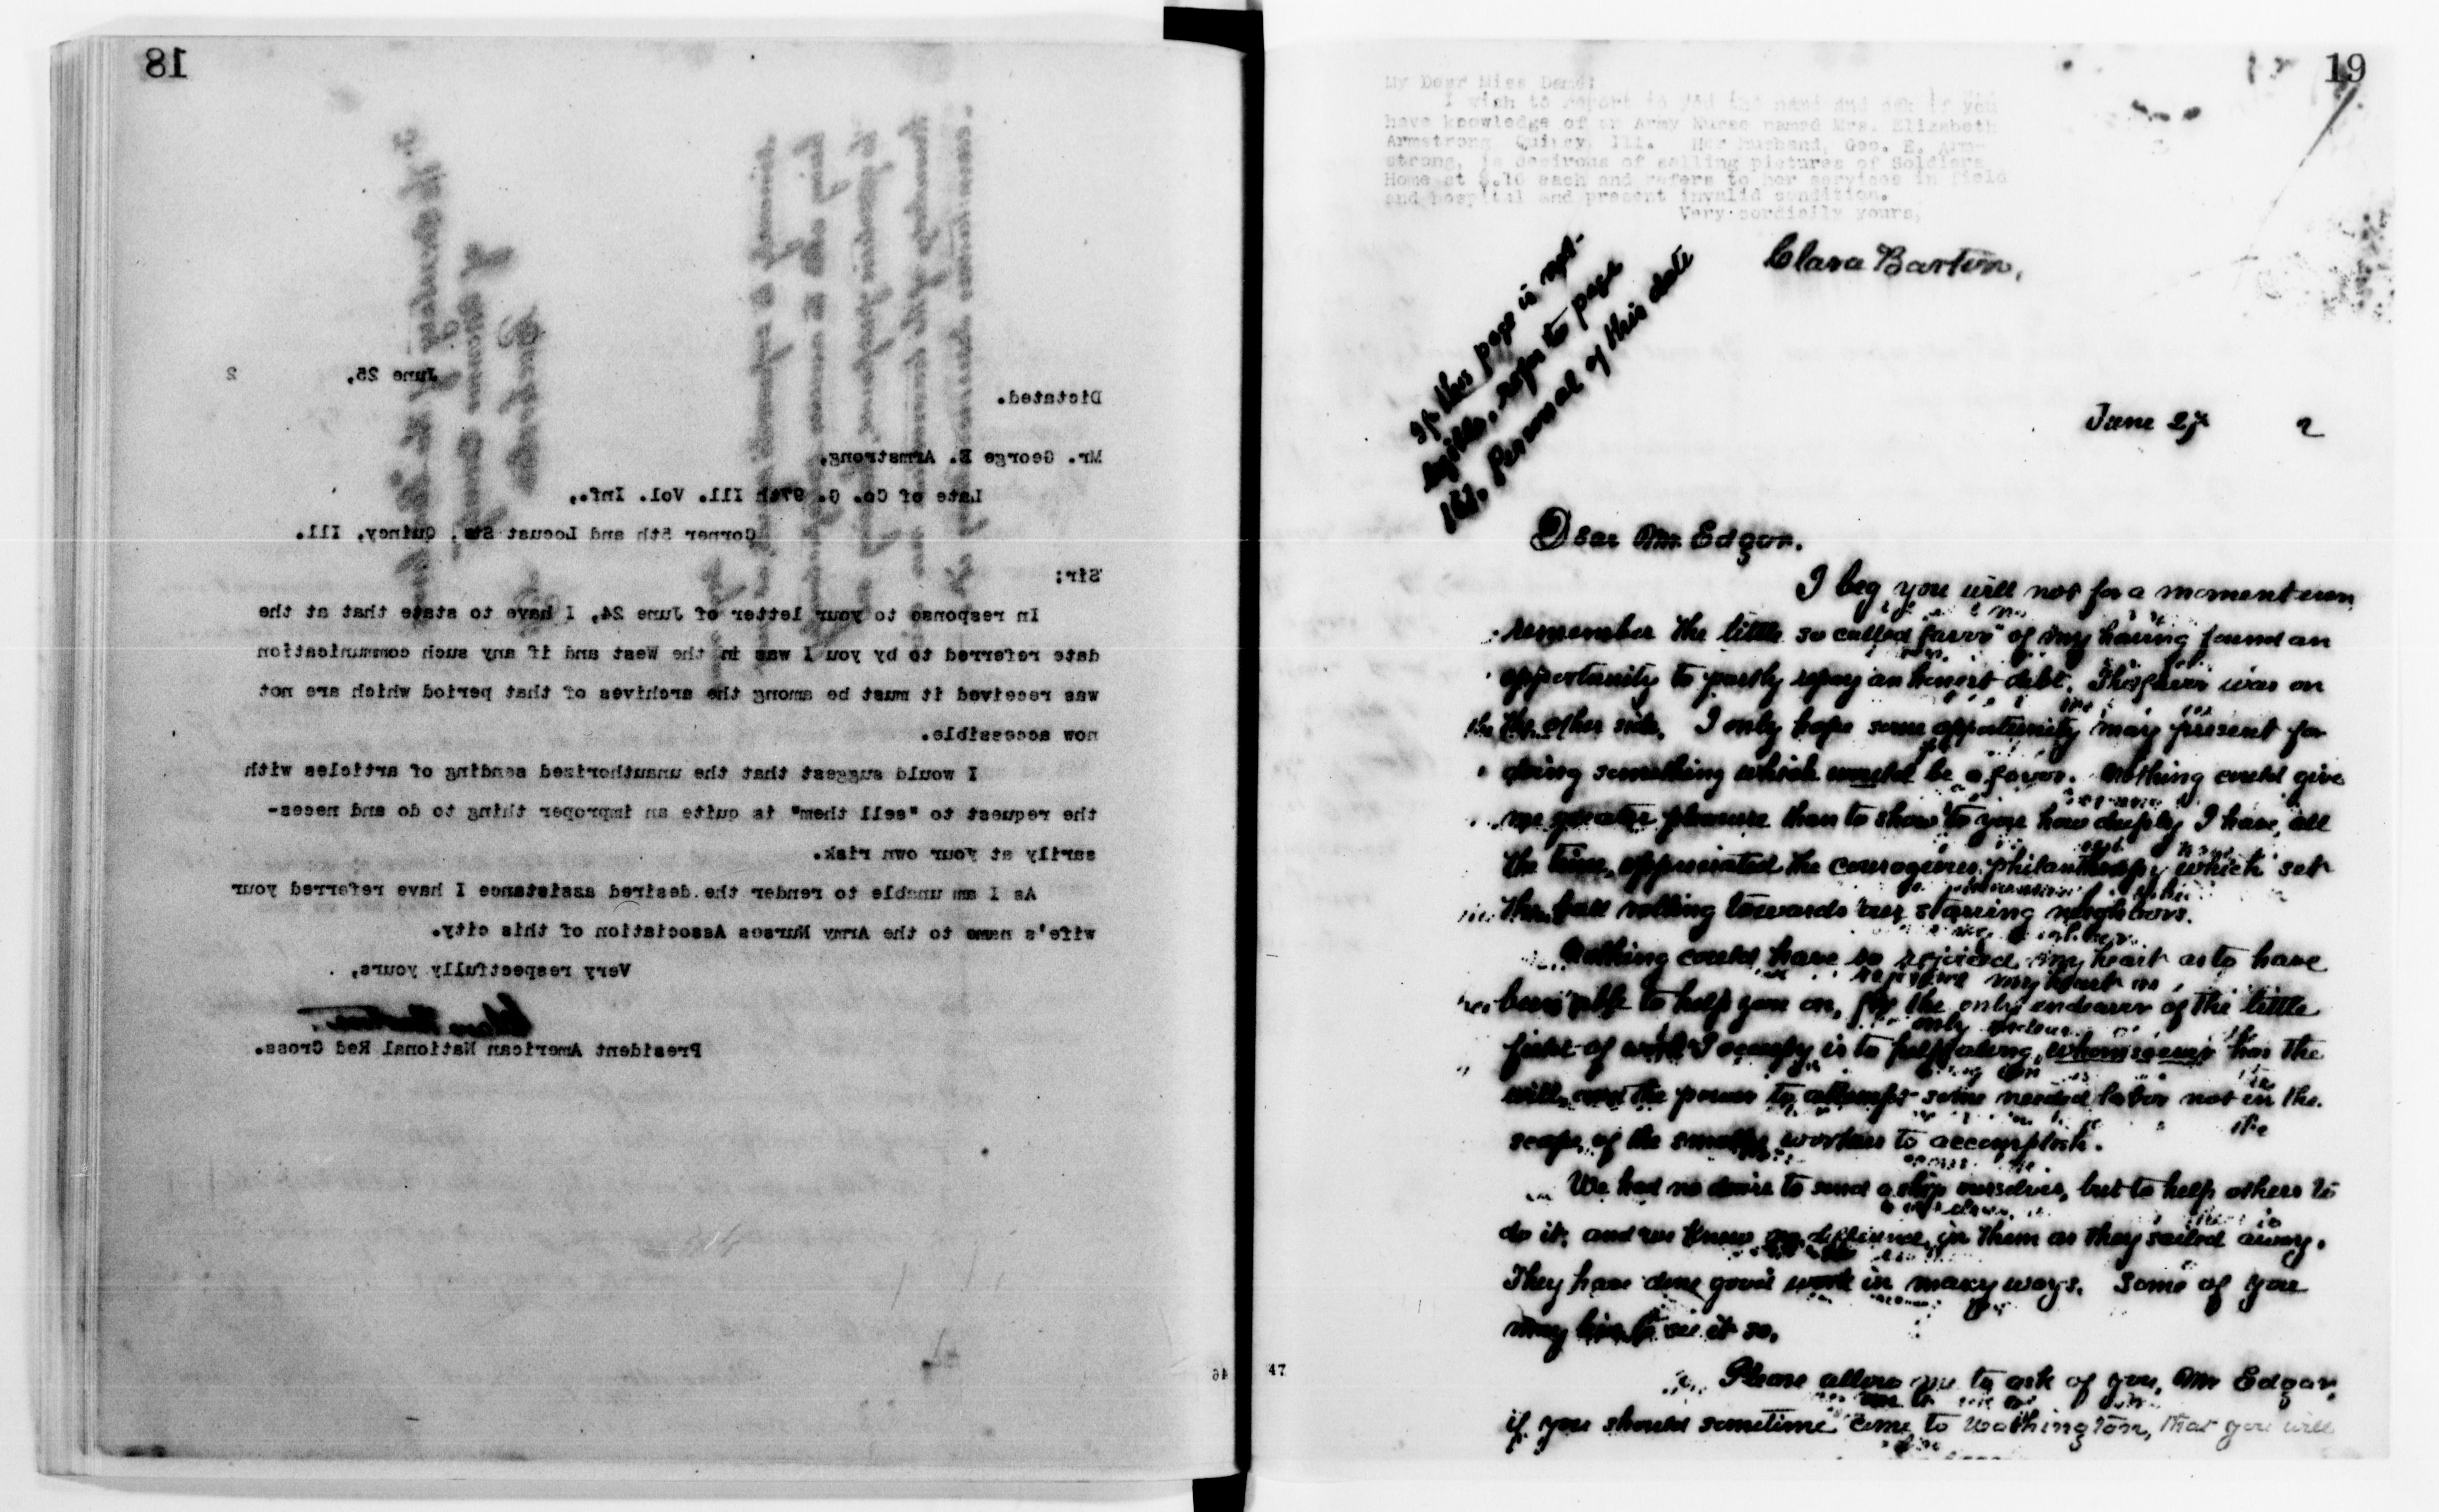 18
June 25, 2
Dictated.
Mr. George E. Armstrong,
Late of Co. G. 97th Ill. Vol. Inf.,
Corner 5th and Locust Sts., Quincy, Ill.
Sir:
In response to your letter of June 24, I have to state that at the
date referred to by you I was in the West and if any such communication
was received it must be among the archives of that period which are not
now accessible.
I would suggest that the unauthorized sending of articles with
the request to "sell them" is quite an improper thing to do and neces-
sarily at your own risk.
As I am unable to render the desired assistance I have referred your
wife's name to the Army Nurses Association of this city.
Very respectfully yours,
Clara Barton.
President American National Red Cross.
46
19
My Dear Miss
I wish to report to you the name and ask if you
have knowledge of an Army Nurse named Mrs. Elizabeth
Armstrong Quincy, Ill. Her husband, Geo. E. Arm-
strong, is desirous of selling pictures of Soldiers
Home at $.10 each and refers to her services in field
and hospital and present invalid condition.
Very cordially yours,
Clara Barton,
If this page is not
legible, refer to page
161, Personal of this date
June 27 2
Dear Mr. Edgar.
I beg you will not for a moment even
remember the little so called "favor" of my having found an
opportunity to partly repay an honest debt. The favor was on
the other side. I only hope some opportunity may present for
doing something which would be a favor. Nothing could give
me greater pleasure than to show to you how deeply I have, all
the time, appreciated the courageous philanthropy which set
the ball rolling towards our starving neighbors.
Nothing could have so rejoiced my heart as to have
been able to help you on, for the only endeavor of the little
field of work I occupy is to help along, whomsoever has the
will, and the power to attempt some needed labor not in the
scope of the smaller workers to accomplish.
We had no desire to send a ship ourselves, but to help others to
do it, and we knew no difference in them as they sailed away.
They have done good work in many ways. Some of you
may live to see it so.
Please allow me to ask of you, Mr Edgar,
if you should sometime come to Washington, that you will
47